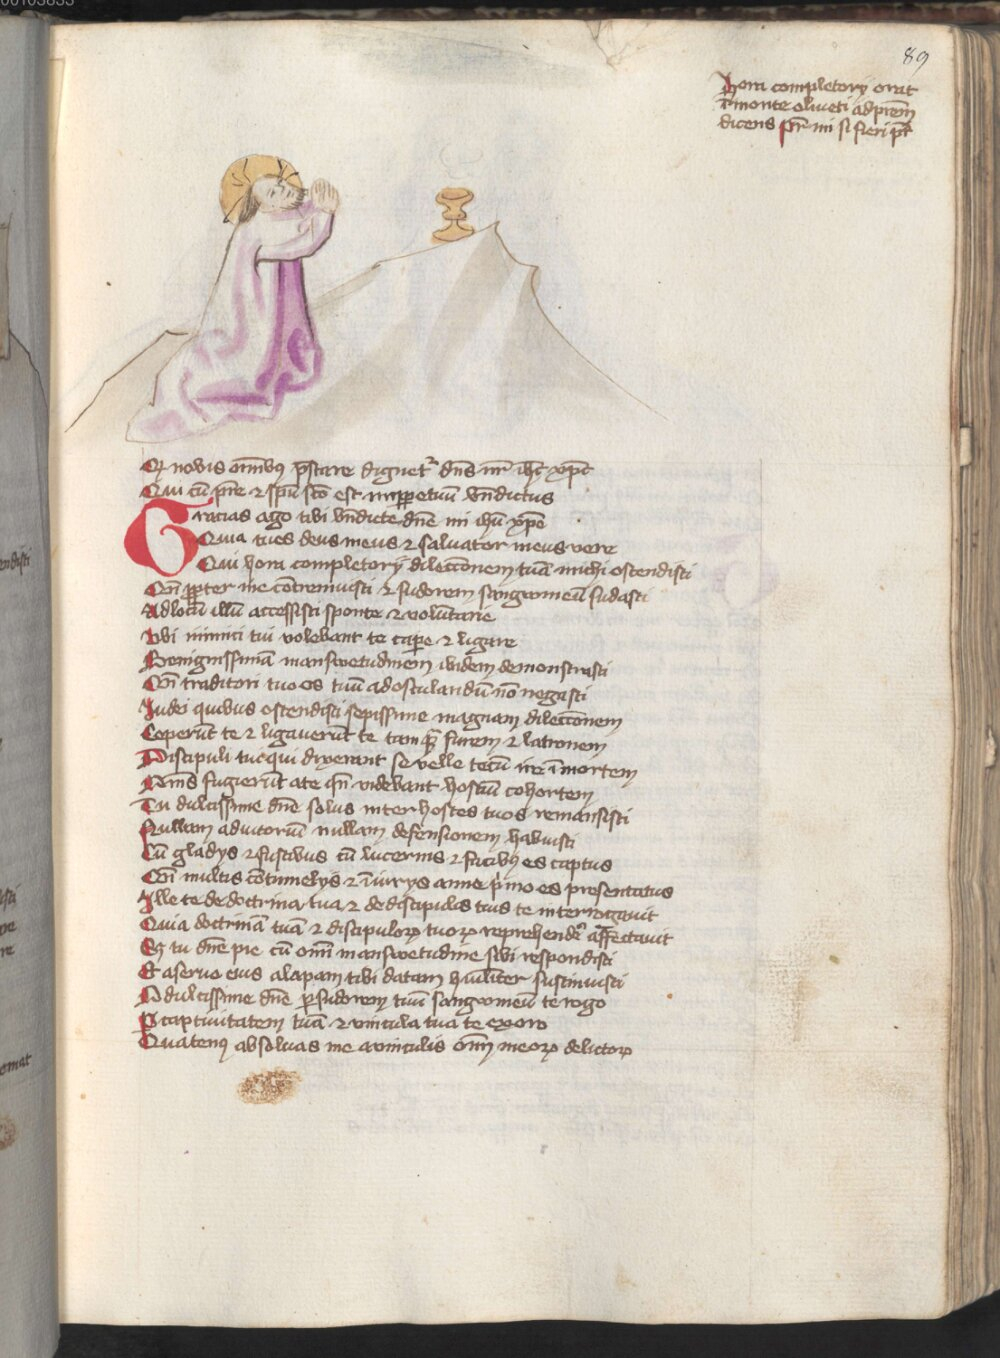 00103833
89
Hora completorij orat
ī monte oliueti ad prēm
dicens pr̄ mi si fieri pt̄
Qd nobis om̄ibꝰ p̄stare dignetᷣ dn̄s nr̄ ihc̄ xpc̄
Qui cū pr̄e ⁊ sp̄u sc̄o est in ꝑpetuū bn̄dictus
Gracias ago tibi bn̄dicte dn̄e mi ihū xpē
Quia tu es deus meus ⁊ saluator meus vere
Qui hora completorij dilecc̄onem tuā michi ostendisti
Cū ꝓpter me cōtremuisti ⁊ sudorem sangwineū sudasti
Ad locū illū accessisti sponte ⁊ volūtarie
Vbi inimici tui volebant te caꝑe ⁊ ligare
Benignissimā manswetudinem ibidem demonstrasti
Cū traditori tuo os tuū ad osculandū nō negasti
Iudei quibus ostendisti sepissime magnam dilecc̄onem
Ceperūt te ⁊ ligauerūt te tamqᷓ furem ⁊ latronem
Discipuli tui qui dixerant se velle tecū ire ī mortem
Om̄s fugierūt a te qn̄ videbant hostiū cohortem
Tu dulcissime dn̄e solus inter hostes tuos remansisti
Nullam adiutoriū nullam defensionem habuisti
Cū gladijs ⁊ fustibus cū lucernis ⁊ facibꝰ es captus
Cū multis cōtumelijs ⁊ īiurijs anne p̄mo es presentatus
Ille te de doctrina tua ⁊ de discipulis tuis te interrogauit
Quia doctrinā tuā ⁊ discipuloꝝ tuoꝝ reprehendē affectauit
Sꝫ tu dn̄e pie cū om̄i manswetudine sibi respondisti
Et a seruo eius alapam tibi datam hūiliter sustinuisti
O dulcissime dn̄e ꝑ sudorem tuū sangwineū te rogo
Ꝑ captiuitatem tuā ⁊ vincula tua te exoro
Quatenꝰ absoluas me a vinculis om̄ meoꝝ delictoꝝ